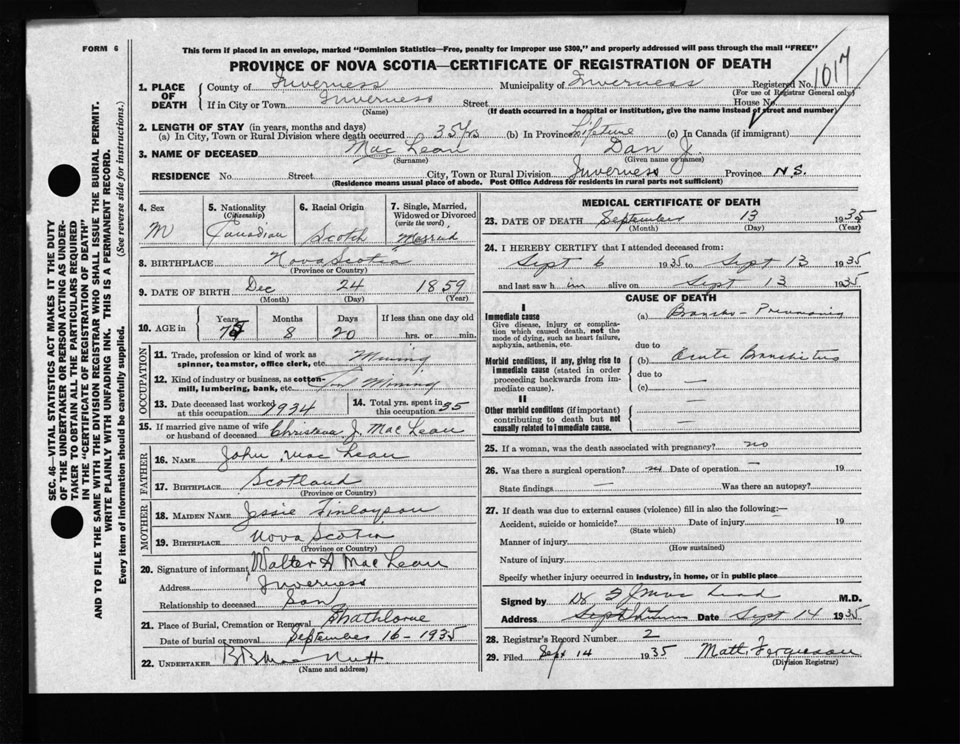 FORM 6
This form if placed in an envelope, marked "Dominion Statistics—Free, penalty for improper use $300," and properly addressed will pass through the mail "FREE"
PROVINCE OF NOVA SCOTIA—CERTIFICATE OF REGISTRATION OF DEATH
1. PLACE OF DEATH
County of Inverness Municipality of Inverness Registered No. 1017
(For use of Registrar General only)
If in City or Town Inverness Street House No.
(Name) (If death occurred in a hospital or institution, give the name instead of street and number)
2. LENGTH OF STAY (in years, months and days)
(a) In City, Town or Rural Division where death occurred 35 Yrs (b) In Province Lifetime (c) In Canada (if immigrant)
3. NAME OF DECEASED Mac Lean Dan J.
(Surname) (Given name or names)
RESIDENCE No. Street City, Town or Rural Division Inverness Province N.S.
(Residence means usual place of abode. Post Office Address for residents in rural parts not sufficient)
4. Sex M
5. Nationality (Citizenship) Canadian
6. Racial Origin Scotch
7. Single, Married, Widowed or Divorced (write the word) Married
8. BIRTHPLACE Nova Scotia
(Province or Country)
9. DATE OF BIRTH Dec 24 1859
(Month) (Day) (Year)
10. AGE in Years 75 Months 8 Days 20 If less than one day old hrs. or min.
OCCUPATION
11. Trade, profession or kind of work as spinner, teamster, office clerk, etc. Mining
12. Kind of industry or business, as cotton-mill, lumbering, bank, etc. Mining
13. Date deceased last worked at this occupation 1934
14. Total yrs. spent in this occupation 35
15. If married give name of wife or husband of deceased Christena J. Mac Lean
FATHER
16. NAME John Mac Lean
17. BIRTHPLACE Scotland
(Province or Country)
MOTHER
18. MAIDEN NAME Jessie Finlayson
19. BIRTHPLACE Nova Scotia
(Province or Country)
20. Signature of informant Walter A Mac Lean
Address Inverness
Relationship to deceased Son
21. Place of Burial, Cremation or Removal Strathlorne
Date of burial or removal September 16 - 1935
22. UNDERTAKER
(Name and address)
MEDICAL CERTIFICATE OF DEATH
23. DATE OF DEATH September 13 1935
(Month) (Day) (Year)
24. I HEREBY CERTIFY that I attended deceased from:
Sept 6 1935 to Sept 13 1935
and last saw him alive on Sept 13 1935
CAUSE OF DEATH
I
Immediate cause
Give disease, injury or complication which caused death, not the mode of dying, such as heart failure, asphyxia, asthenia, etc.
(a) Broncho-Pneumonia
due to
Morbid conditions, if any, giving rise to immediate cause (stated in order proceeding backwards from immediate cause).
(b) Acute Bronchitis
due to —
(c) —
II
Other morbid conditions (if important) contributing to death but not causally related to immediate cause. —
25. If a woman, was the death associated with pregnancy? no
26. Was there a surgical operation? no Date of operation — 19
State findings — Was there an autopsy?
27. If death was due to external causes (violence) fill in also the following:—
Accident, suicide or homicide? Date of injury 19
(State which)
Manner of injury
(How sustained)
Nature of injury
Specify whether injury occurred in industry, in home, or in public place
Signed by Dr M.D.
Address Date Sept 14 1935
28. Registrar's Record Number 2
29. Filed Sept 14 1935 Matt. Ferguson
(Division Registrar)
SEC. 46—VITAL STATISTICS ACT MAKES IT THE DUTY
OF THE UNDERTAKER OR PERSON ACTING AS UNDER-
TAKER TO OBTAIN ALL THE PARTICULARS REQUIRED
IN THE "CERTIFICATE OF REGISTRATION OF DEATH"
AND TO FILE THE SAME WITH THE DIVISION REGISTRAR WHO SHALL ISSUE THE BURIAL PERMIT.
WRITE PLAINLY WITH UNFADING INK. THIS IS A PERMANENT RECORD.
Every item of information should be carefully supplied. (See reverse side for instructions.)